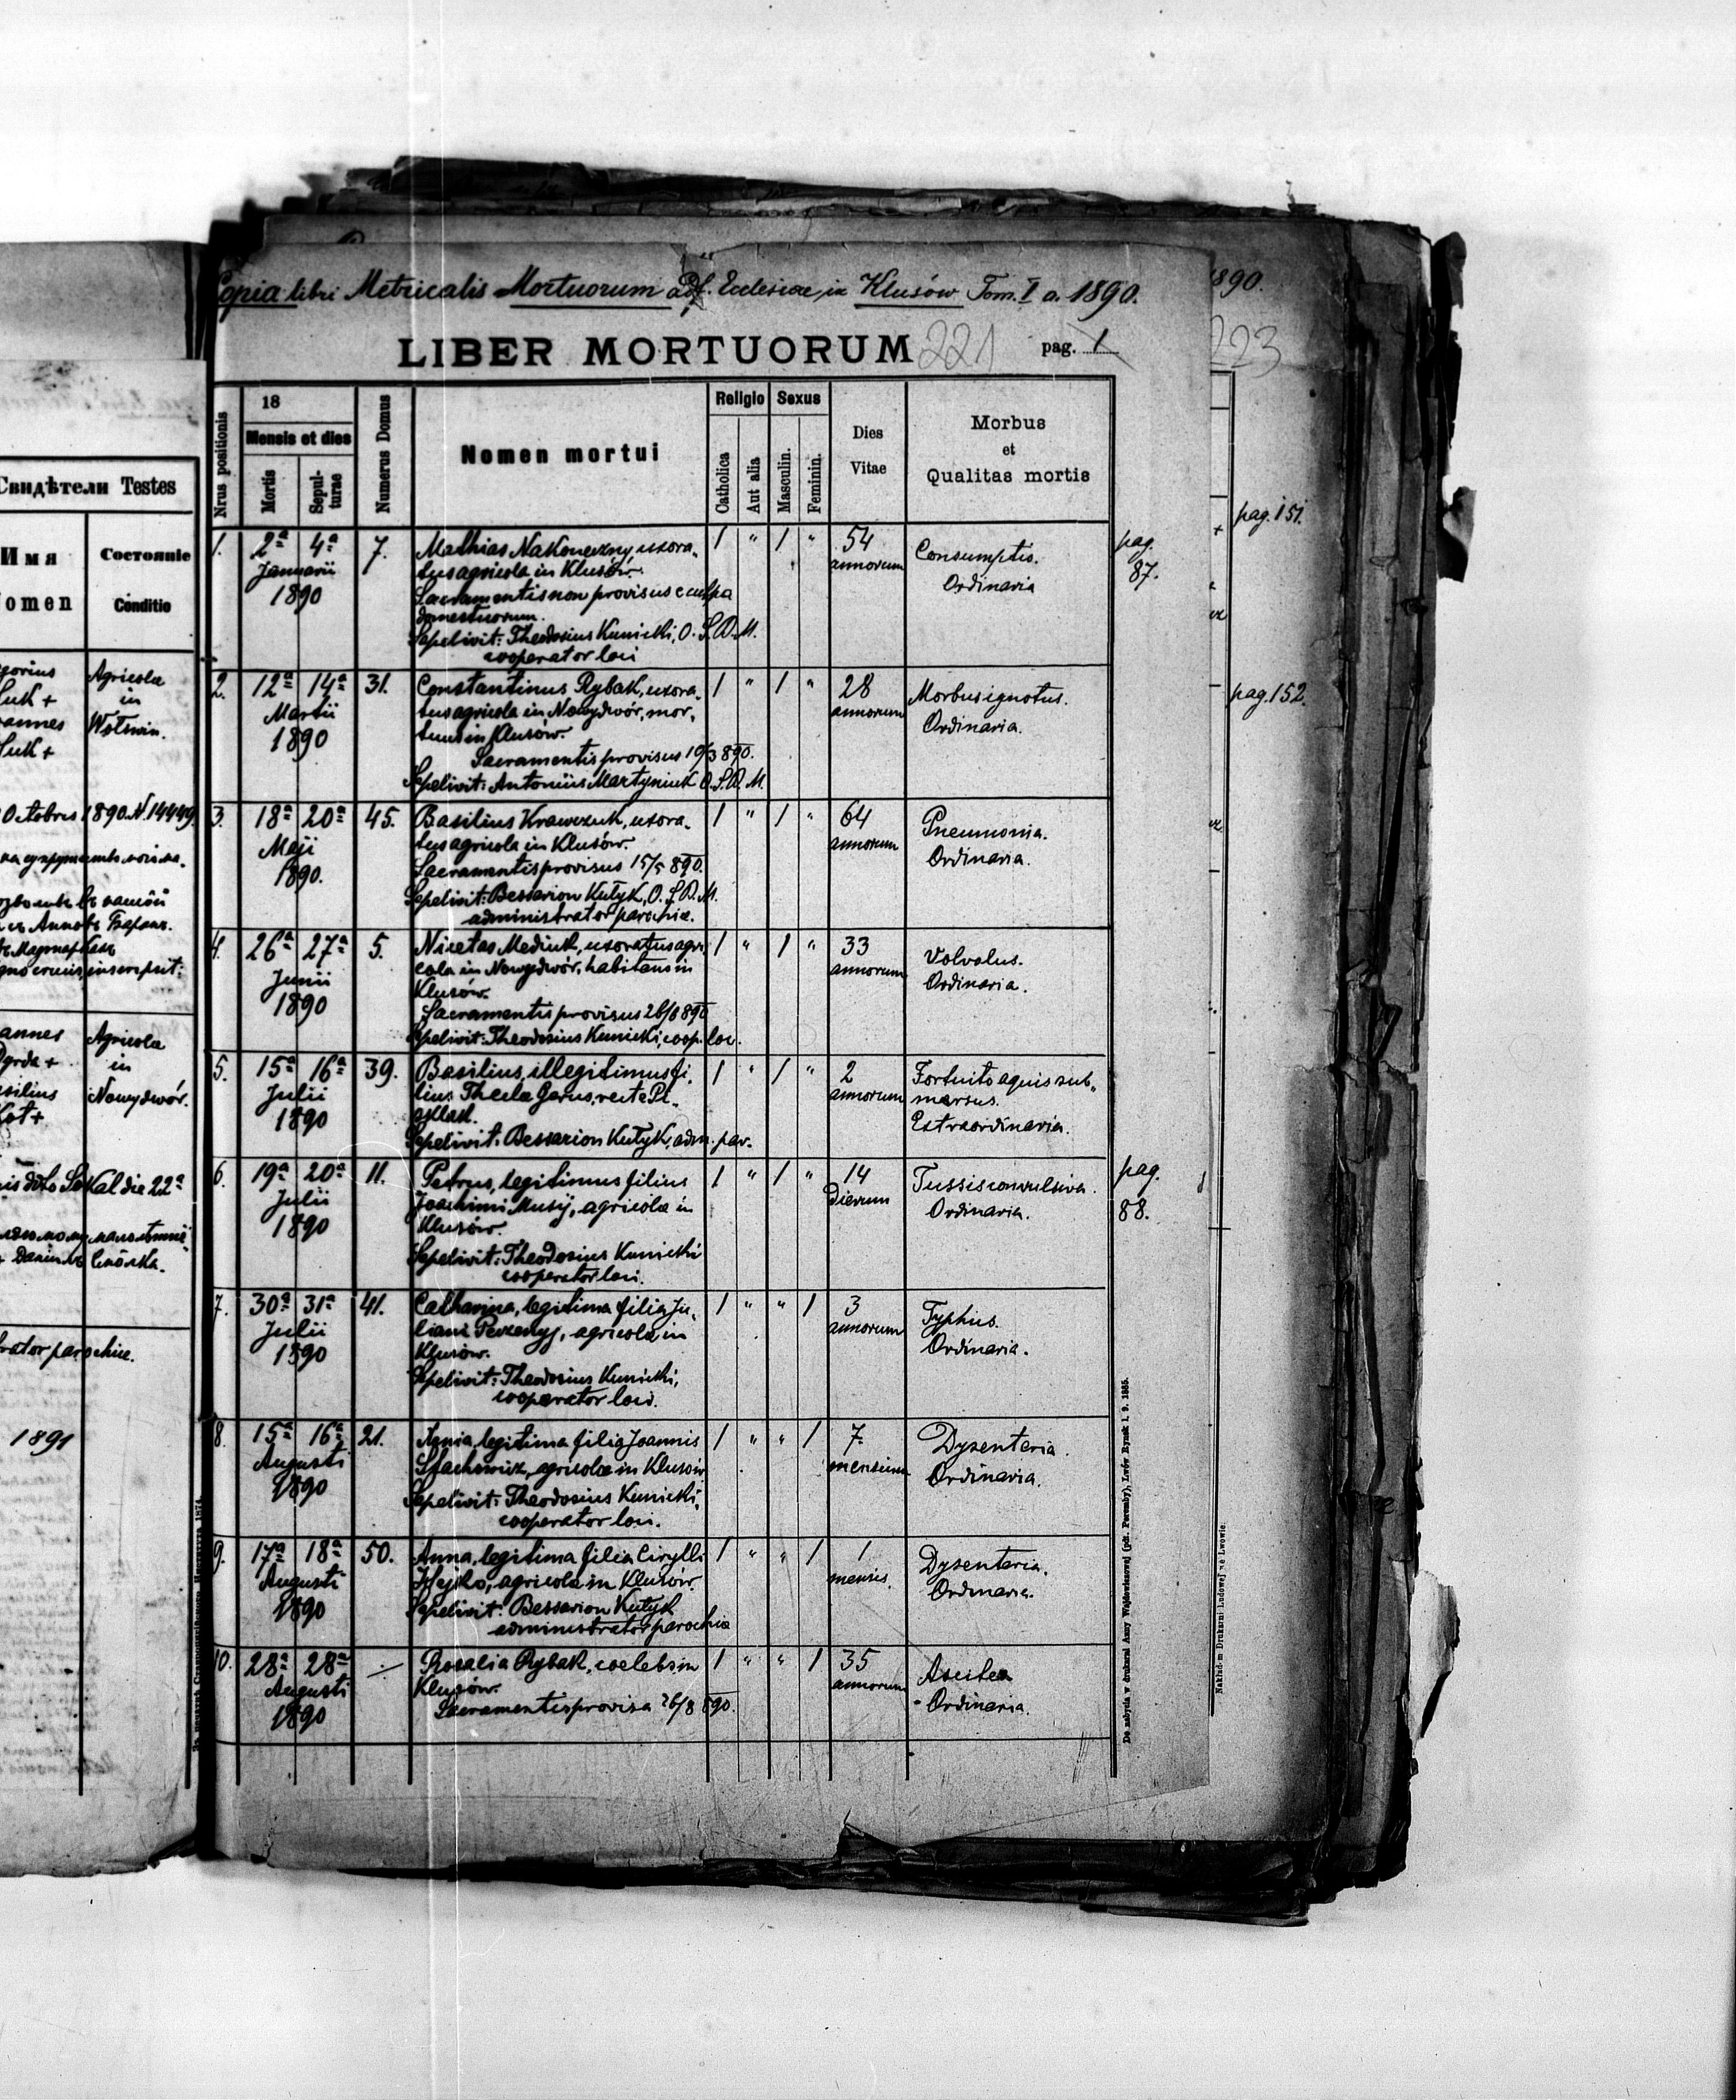 Свидѣтели Testes
Имя
Состоянiе
omen
Conditio
gorius
Agricola
Suk +
in
annes
Wolswin.
Suk +
Octobris 1890. N. 14449.
annes
Agricola
in
silius
Nowydwór.
Kot +
Sokal die 22ª
rator parochiæ.
1891
Copia libri Metricalis Mortuorum ad Ecclesiae in Klusów Tom. I a. 1890.
LIBER MORTUORUM 221 pag. 1
Nrus positionis
18
Mensis et dies
Mortis
Sepul-
turae
Numerus Domus
Nomen mortui
Religio
Catholica
Aut alia
Sexus
Masculin.
Feminin.
Dies
Vitae
Morbus
et
Qualitas mortis
1. 2ª 4ª 7. Mathias Nakoneczny, uxora- 1 " 1 " 54 Consumptio.
Januarii tus agricola in Klusów. annorum Ordinaria
1890 Sacramentis non provisus e culpa
domesticorum.
Sepelivit: Theodosius Kunicki, O. S. B. M.
cooperator loci
pag.
87.
2. 12ª 14ª 31. Constantinus Rybak, uxora- 1 " 1 " 28 Morbus ignotus.
Martii tus agricola in Nowydwór, mor- annorum Ordinaria.
1890 tuus in Klusow.
Sacramentis provisus 10/3 890.
Sepelivit: Antonius Martyniuk O. S. B. M.
3. 18ª 20ª 45. Basilius Krawczuk, uxora- 1 " 1 " 64 Pneumonia.
Maji tus agricola in Klusów. annorum Ordinaria.
1890. Sacramentis provisus 15/5 890.
Sepelivit: Bessarion Kutyk, O. S. B. M.
administrator parochiæ.
4. 26ª 27ª 5. Nicetas Mediuk, uxoratus agri- 1 " 1 " 33 Volvolus.
Junii cola in Nowydwór, habitans in annorum Ordinaria.
1890 Klusów.
Sacramentis provisus 26/6 890
Sepelivit: Theodosius Kunicki, coop. loci.
5. 15ª 16ª 39. Basilius, illegitimus fi- 1 " 1 " 2 Fortuito aquis sub-
Julii lius Theclæ Gerus, recte annorum mersus.
1890 Extraordinaria.
Sepelivit: Bessarion Kutyk, adm. par.
6. 19ª 20ª 11. Petrus, legitimus filius 1 " 1 " 14 Tussis convulsiva.
Julii Joachimi Musij, agricolæ in Dierum Ordinaria.
1890 Klusów.
Sepelivit: Theodosius Kunicki
cooperator loci.
pag.
88.
7. 30ª 31ª 41. Catharina, legitima filia Ju- 1 " " 1 3 Typhus.
Julii liani agricolæ in annorum Ordinaria.
1890 Klusów.
Sepelivit: Theodosius Kunicki,
cooperator loci.
8. 15ª 16ª 21. legitima filia Joannis 1 " " 1 7 Dysenteria.
Augusti Stachowicz, agricolæ in Klusów mensium Ordinaria.
1890 Sepelivit: Theodosius Kunicki,
cooperator loci.
9. 17ª 18ª 50. Anna, legitima filia Cirylli 1 " " 1 1 Dysenteria.
Augusti Hejko, agricolæ in Klusów. mensis. Ordinaria.
1890 Sepelivit: Bessarion Kutyk
administrator parochiæ
10. 28ª 28ª — Rosalia Rybak, coelebs in 1 " " 1 35 Ascites
Augusti Klusów. annorum Ordinaria.
1890 Sacramentis provisa 26/8 890.
Do nabycia w drukarni Anny Wajdowiczowej (pdt. Poremby), Lwów Rynek l. 9. 1885.
1890.
223
pag. 151.
pag. 152.
Nakładem Drukarni Ludowej we Lwowie.